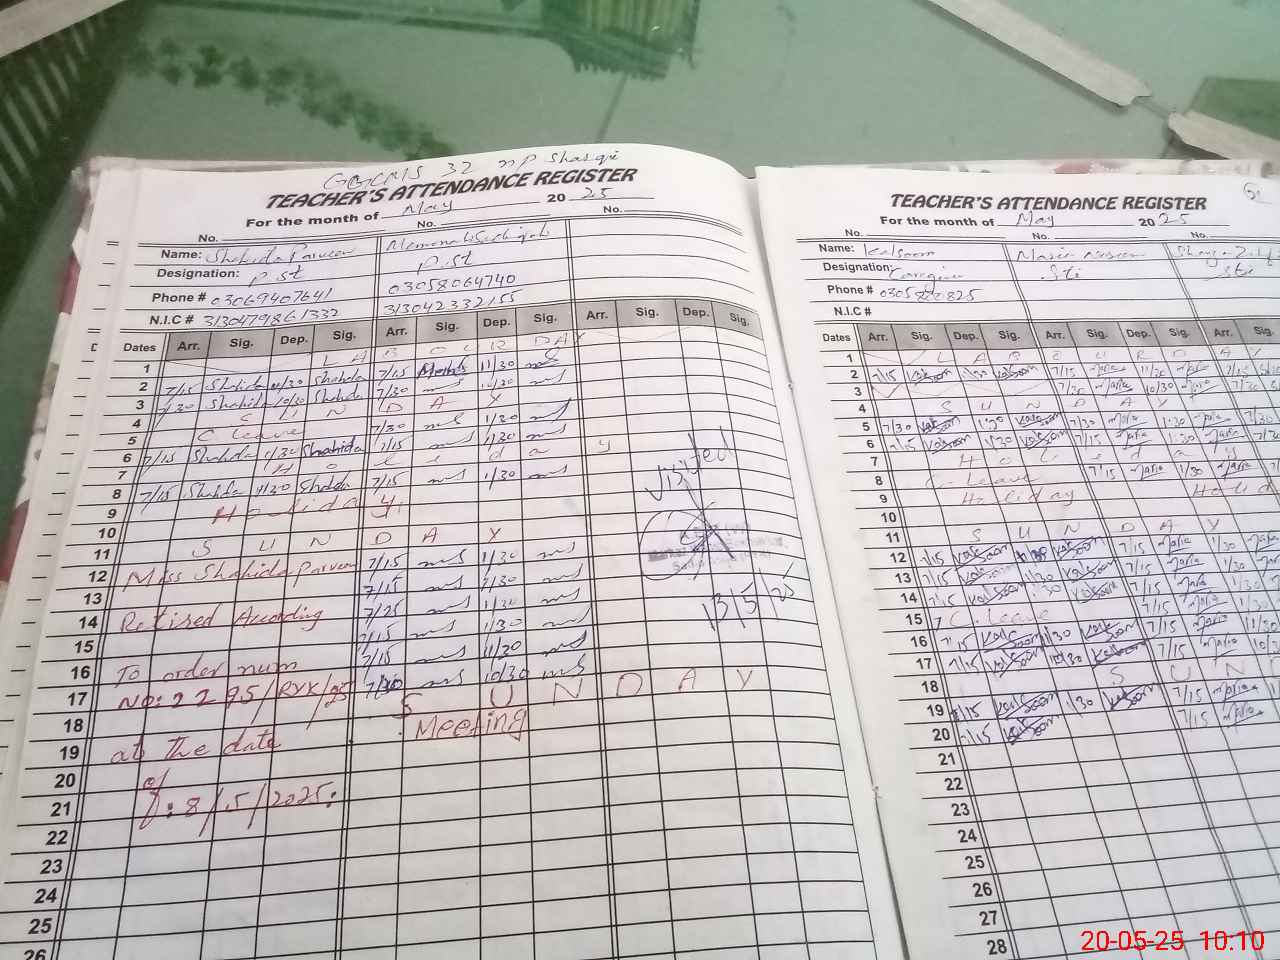 GGCMS 32 NP Sharqi
TEACHER'S ATTENDANCE REGISTER
For the month of May 2025
No. No. No.
Name: Shahida Parveen
Designation: P.st P.st
Phone # 03069407641 03058064740
N.I.C # 3130479861332 313042332155
Dates Arr. Sig. Dep. Sig. Arr. Sig. Dep. Sig. Arr. Sig. Dep. Sig.
1 LABOUR DAY
2 7/15 Shahida 11/30 Shahida 7/15 11/30 ms
3 7/30 Shahid 10/30 Shahida 7/30 ms 10/30 ms
4 SUNDAY
5 C leave 7/30 ms 1/30 ms
6 7/15 Shahida 1/30 Shahida 7/15 ms 1/30 ms
7 Holiday
8 7/15 Shahida 1/30 Shahida 7/15 ms 1/30 ms
9 Holiday
10
11 SUNDAY
12 Miss Shahida Parveen 7/15 ms 1/30 ms
13 7/15 ms 1/30 ms
14 Retired According 7/25 ms 1/30 ms
15 7/15 ms 1/30 ms
16 To order num 7/15 ms 11/30 ms
17 NO: 2295/RYK/25 7/30 ms 10/30 ms
18 SUNDAY
19 at the date Meeting
20 of
21 : 8/5/2025:
22
23
24
25
26
Visited
13/5/25
TEACHER'S ATTENDANCE REGISTER
For the month of May 2025
No. No. No.
Name: Kalsoom
Designation: Caregiver Sti Sti
Phone #
N.I.C #
Dates Arr. Sig. Dep. Sig. Arr. Sig. Dep. Sig. Arr. Sig.
1 LABOURDAY
2 7/15 Kalsoom 11/30 Kalsoom 7/15 Maria 11/30 Maria 7/15
3 7/30 Maria 10/30 Maria 7/30
4 SUNDAY
5 7/30 Kalsoom 1:30 Kalsoom 7/30 Maria 1:30 Maria 7/30
6 7/15 Kalsoom 1/30 Kalsoom 7/15 Maria 1:30 Maria 7/30
7 Holiday
8 C. Leave 7/15 Maria 1/30 Maria 7/15
9 Holiday Holid
10
11 SUNDAY
12 7/15 Kalsoom 1:30 Kalsoom 7/15 Maria 1/30 Maria
13 7/15 Kalsoom 1/30 Kalsoom 7/15 Maria 1/30
14 7/15 Kalsoom 1:30 Kalsoom 7/15 Maria 1/30
15 C. leave 7/15 Maria 1/30
16 7/15 Kalsoom 1/30 Kalsoom 7/15 Maria 11/30
17 7/15 Kalsoom 10/30 Kalsoom 7/15 Maria
18 SUN
19 7/15 Kalsoom 1/30 Kalsoom 7/15 Maria
20 7/15 Kalsoom 7/15 Maria
21
22
23
24
25
26
27
28
20-05-25 10:10